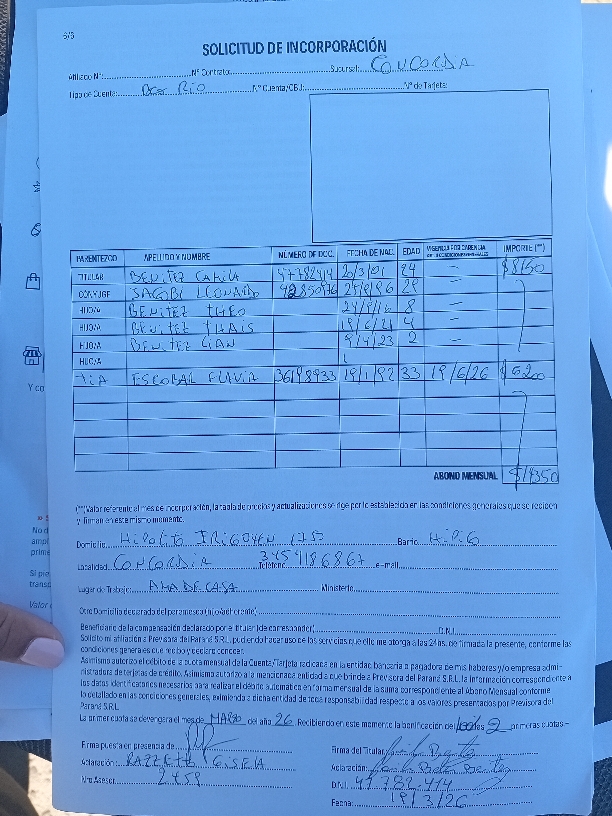 6/6
SOLICITUD DE INCORPORACIÓN
Afiliado N°: N° Contrato: Sucursal: CONCORDIA
Tipo de Cuenta: N° Cuenta/CBU: N° de Tarjeta:
PARENTEZCO APELLIDO Y NOMBRE NÚMERO DE DOC. FECHA DE NAC. EDAD VIGENCIA POS CARENCIA IMPORTE (**)
TITULAR BENITEZ CAMILA 47782414 24 — $8150
CONYUGE LEONARDO —
HIJO/A BENITEZ THEO 8 —
HIJO/A BENITEZ THAIS 4 —
HIJO/A BENITEZ GIAN 9/4/23 2 —
HIJO/A
TIA ESCOBAR FLAVIA 19/1/92 33 19/6/26 $6200
ABONO MENSUAL
(**)Valor referente al mes de incorporación, la tabla de precios y actualizaciones se rige por lo establecido en las condiciones generales que se reciben
y firman en este mismo momento.
Domicilio HIPOLITO IRIGOYEN Barrio
Localidad CONCORDIA Teléfono 3454186867 e-mail
Lugar de Trabajo: AMA DE CASA Ministerio:
Otro Domicilio declarado del paramesco (hijo/adherente)
Beneficiario de la compensación declarado por el titular (de corresponder) D.N.I.
Solicito mi afiliación a Previsora del Paraná S.R.L. pudiendo hacer uso de los servicios que ello me otorga a las 24hs. de firmada la presente, conforme las
condiciones generales que recibo y declaro conocer.
Asimismo autorizo el débito de la cuota mensual de la Cuenta/Tarjeta radicada en la entidad bancaria o pagadora de mis haberes y/o empresa admi-
nistradora de tarjetas de crédito. Asimismo autorizo a la mencionada entidad a que brinde a Previsora del Paraná S.R.L. la información correspondiente a
los datos identificatorios necesarios para realizar el débito automático en forma mensual de la suma correspondiente al Abono Mensual conforme
lo detallado en las condiciones generales, eximiendo a dicha entidad de toda responsabilidad respecto a los valores presentados por Previsora del
Paraná S.R.L.
La primer cuota se devengará el mes de MARZO del año 26. Recibiendo en este momento la bonificación de las 2 primeras cuotas.-
Firma puesta en presencia de Firma del Titular
Aclaración: GISELA Aclaración:
Nro Asesor: 2459 D.N.I. 47782414
Fecha: 19/3/26